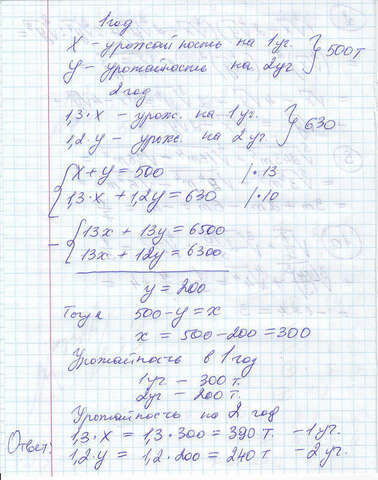 1 год
x – урожайность на 1 уг.
y – урожайность на 2 уг } 500 т
2 год
1,3·x – урож. на 1 уг.
1,2·y – урож. на 2 уг. } 630
x + y = 500 /·13
1,3·x + 1,2y = 630 /·10
– 13x + 13y = 6500
13x + 12y = 6300
y = 200
Тогда 500 – y = x
x = 500 – 200 = 300
Урожайность в 1 год
1 уг – 300 т.
2 уг – 200 т.
Урожайность на 2 год
Ответ: 1,3·x = 1,3·300 = 390 т. – 1 уг.
1,2·y = 1,2·200 = 240 т – 2 уг.